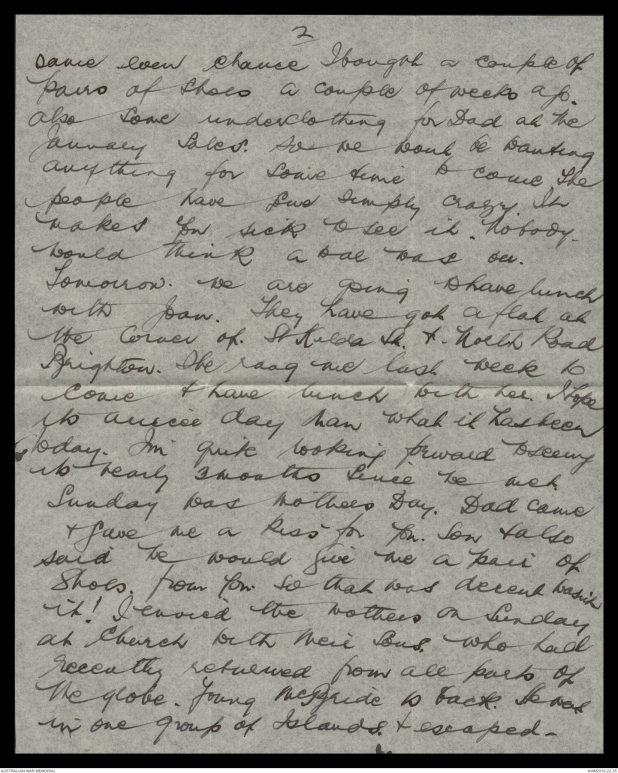 2
same even chance I bought a couple of
pairs of shoes a couple of weeks ago.
also some underclothing for Dad at the
January Sales. So we wont be wanting
anything for some time to come The
people have gone simply crazy. It
makes you sick to see it. Nobody
would think a war was on.
Tomorrow. we are going to have lunch
with Joan. They have got a flat at
the corner of. St Kilda St. & North Road
Brighton. She rang me last week to
come & have lunch with her. I hope
its a nicer day than what it has been
today. Im quite looking forward to seeing
its nearly 3 months since we met.
Sunday was Mothers Day. Dad came
& gave me a kiss for you. Son & also
said he would give me a pair of
Shoes. from you. So that was decent wasnt
it! I envied the mothers on Sunday
at Church with their Sons. who had
recently returned from all parts of
the globe. Young McBride is back. He was
in one group of Islands. & escaped-
AUSTRALIAN WAR MEMORIAL
AWM2019.22.35